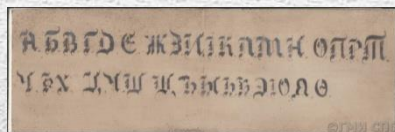 А Б В Г Д Е Ж З И І К Л М Н О П Р Т
У Ф Х Ц Ч Ш Щ Ъ Ы Ь Ѣ Э Ю Я Ѳ